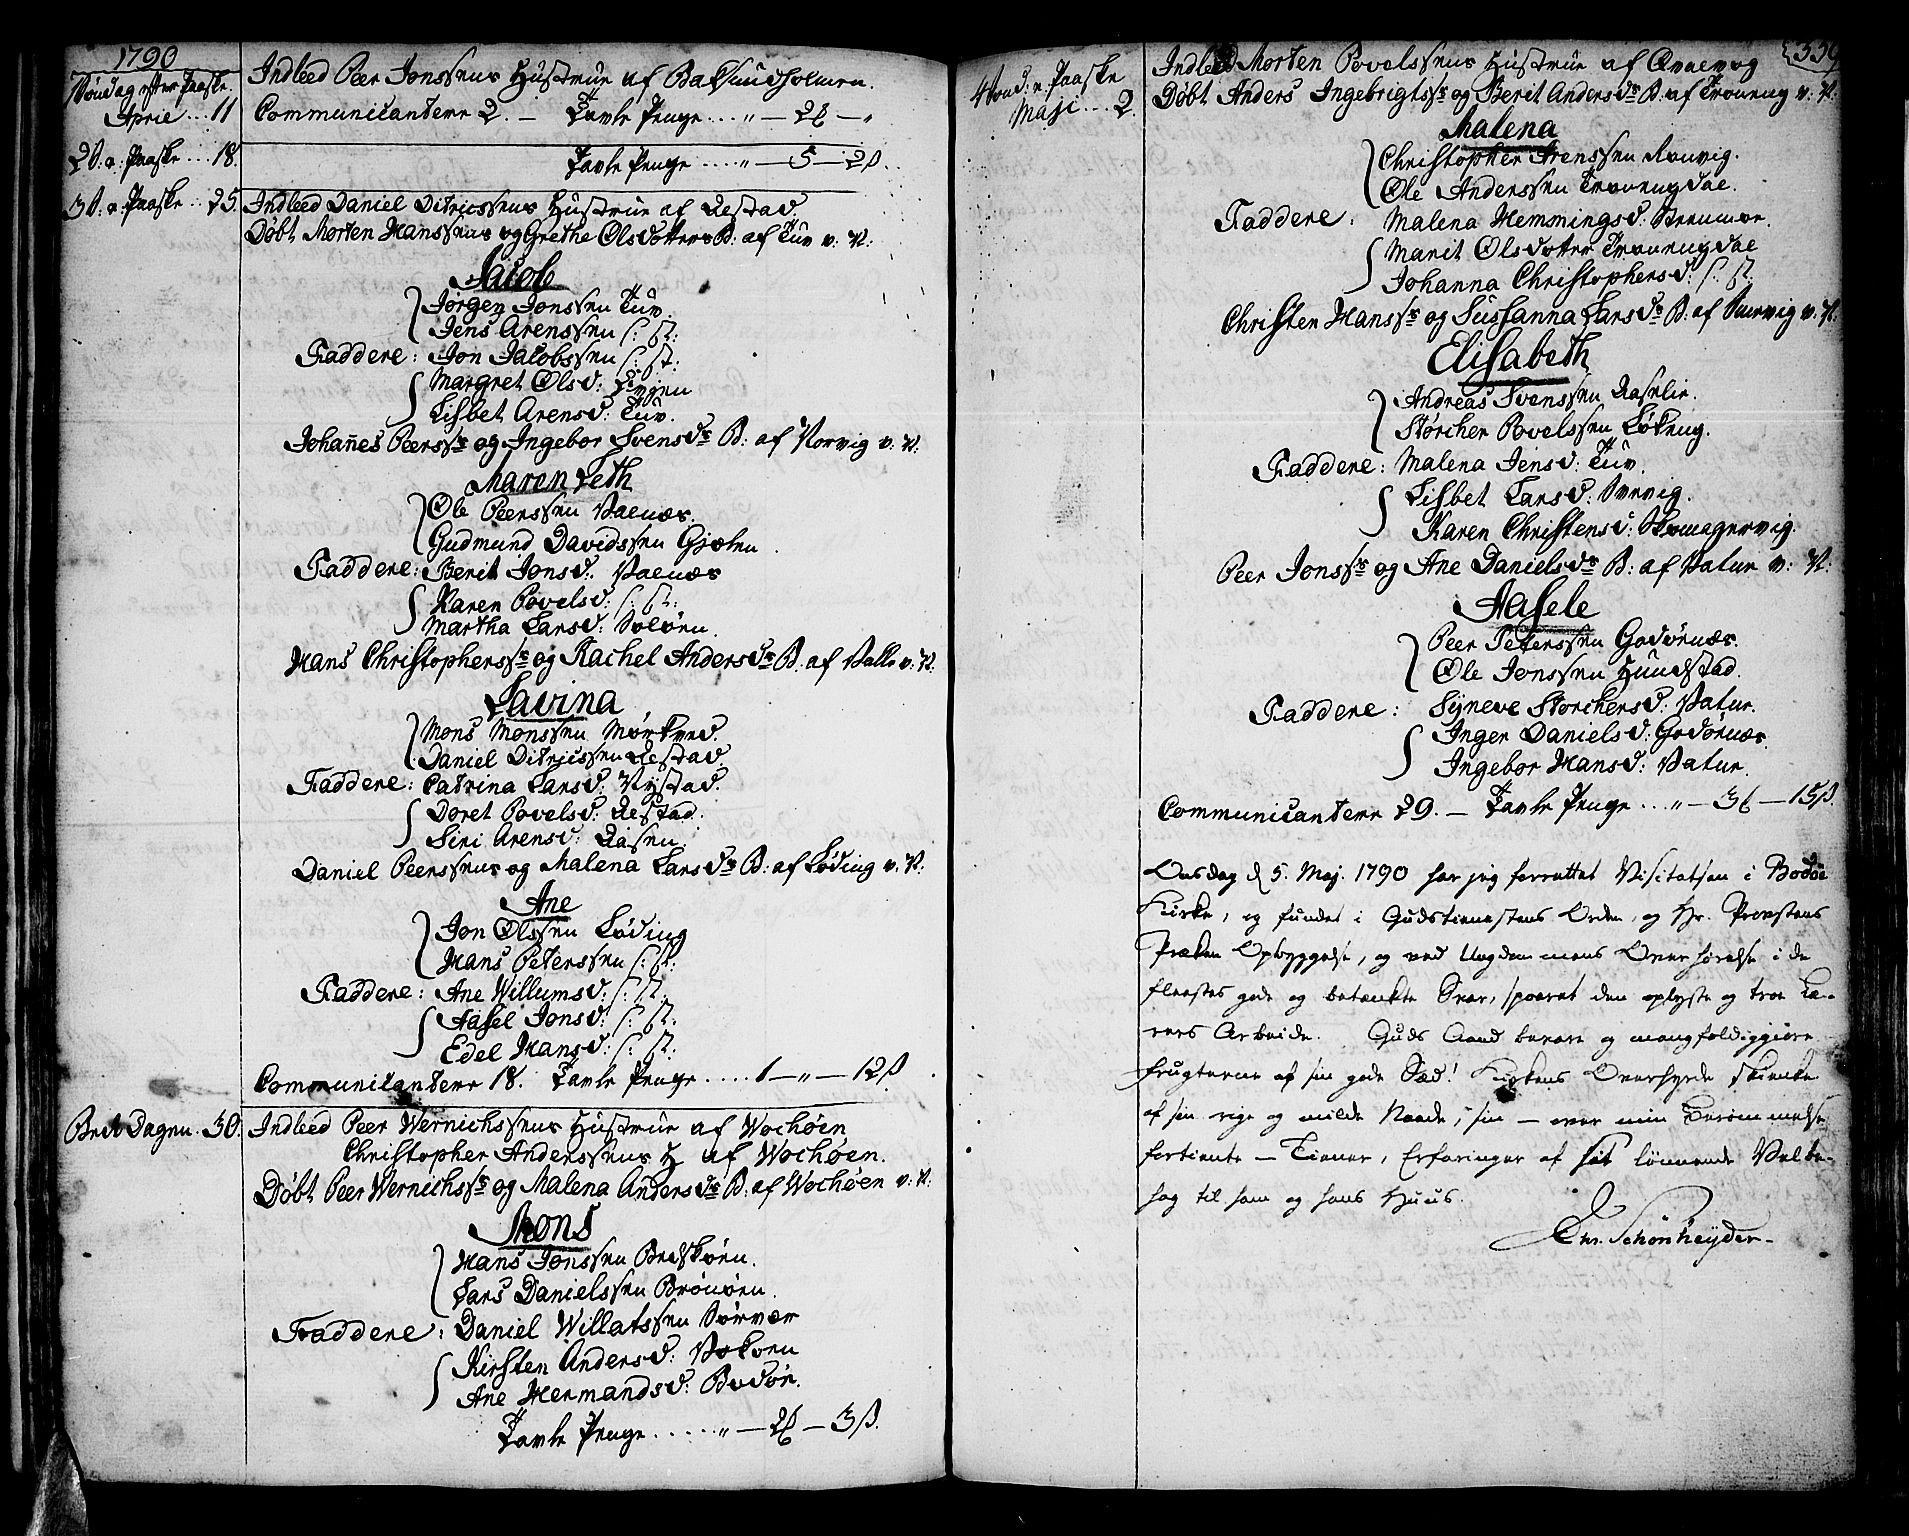 1790
Søndag efter Paaske
April ... 11
Indleed Peer Jonssens Hustrue af Baksundholmen.
Communicantere 2. — Tavle Penge .... " — 2 — "
2 S: e: Paaske ... 18.
Tavle Penge ..... " — 5 — 2 ß
3 S: e: Paaske .. 25.
Indleed Daniel Ditricssens Hustrue af Restad.
Døbt Morten Hanssens og Grethe Olsdotters B: af Tuv v: N:
Jacob
Jørgen Jonssen Tuv.
Jens Arenssen S: St:
Faddere: Jon Jacobssen S: St:
Margret Olsd: Evjen
Lisbet Arensd: Tuv.
Johan̄es Peerss: og Ingebor Svensd: B: af Norvig v: N:
Maren Zeth
Ole Peerssen Valnæs.
Gudmund Davidssen Gjælen.
Faddere: Berit Jonsd: Valnæs
Karen Povelsd: S: St:
Martha Larsd: Soløen.
Hans Christopherss: og Rachel Andersd: B: af Valle v: N:
Lavina
Mons Monssen Mørkved.
Daniel Ditricssen Restad.
Faddere: Catrina Larsd: Nystad.
Doret Povelsd: Restad.
Siri Arensd: Aasen.
Daniel Peerssens og Malena Larsd: B: af Løding v. N:
Ane
Jon Olssen Løding
Hans Peterssen S: St:
Faddere: Ane Willumsd: S: St.
Aasel Jonsd: S: St.
Edel Hansd: S: St:
Communicantere 18. Tavle Penge .... 1 — " — 12 ß
Bede Dagen. 30.
Indleed Peer Wernichssens Hustrue af Wochøen
Christopher Anderssens H. af Wochøen.
Døbt Peer Wernichss: og Malena Andersd: B: af Wochøen v: N:
Mons
Hans Jonssen Bredskøen.
Lars Danielssen Brønøen.
Faddere: Daniel Willatssen Sørvær
Kirsten Andersd:
Ane Hermandsd: Bodøe.
Tavle Penge ...... " — 2 — 3 ß.
4 Sønd: e: Paaske
Maji ... 2.
339
Indleed Morten Povelssens Hustrue af
Døbt Anders Ingebrigtss: og Berit Andersd: B: af Traaeng v: N:
Malena
Christopher Arenssen Ranvig.
Ole Anderssen
Faddere: Malena Hemmingsd: Breumoe.
Marit Olsdotter
Johanna Christophersd: S: St.
Christen Hanss: og Sussanna Larsd: B: af Survig v: N:
Elisabeth
Andreas Svenssen Aaselie.
Størcher Povelssen Løkeng.
Faddere: Malena Jensd: Tuv.
Lisbet Larsd: Survig.
Karen Christensd: Skomagervig.
Peer Jonss: og Ane Danielsd: B: af Vatur v: N:
Aasele
Peer Peterssen Godøenæs.
Ole Jonssen Hundstad.
Faddere: Syneve Størchersd: Vatur.
Inger Danielsd: Godøenæs.
Ingebor Hansd: Vatur.
Communicantere 29. — Tavle Penge ... " — 3 — 15 ß.
Onsdag d 5. Maj. 1790 har jeg forrettet Visitatsen i Bodøe
Kirke, og fundet i Gudstienestens Orden, og Hr. Provstens
Præken Opbyggelse, og ved Ungdommens Overhørelse i de
fleestes gode og betænkte Svar, spoeret den oplyste og troe Læ-
rers Arbeide. Guds Aand bevare og mangfoldiggiøre
Frugterne af sin gode Sæd! Kirkens Overhyrde skienke
af sin rige og milde Naade, sin — over min Berømmelse
fortiente — Tiener, Erfaringer af sit lønnende Velbe-
hag til ham og hans Huus.
Chr. Schønheyder.